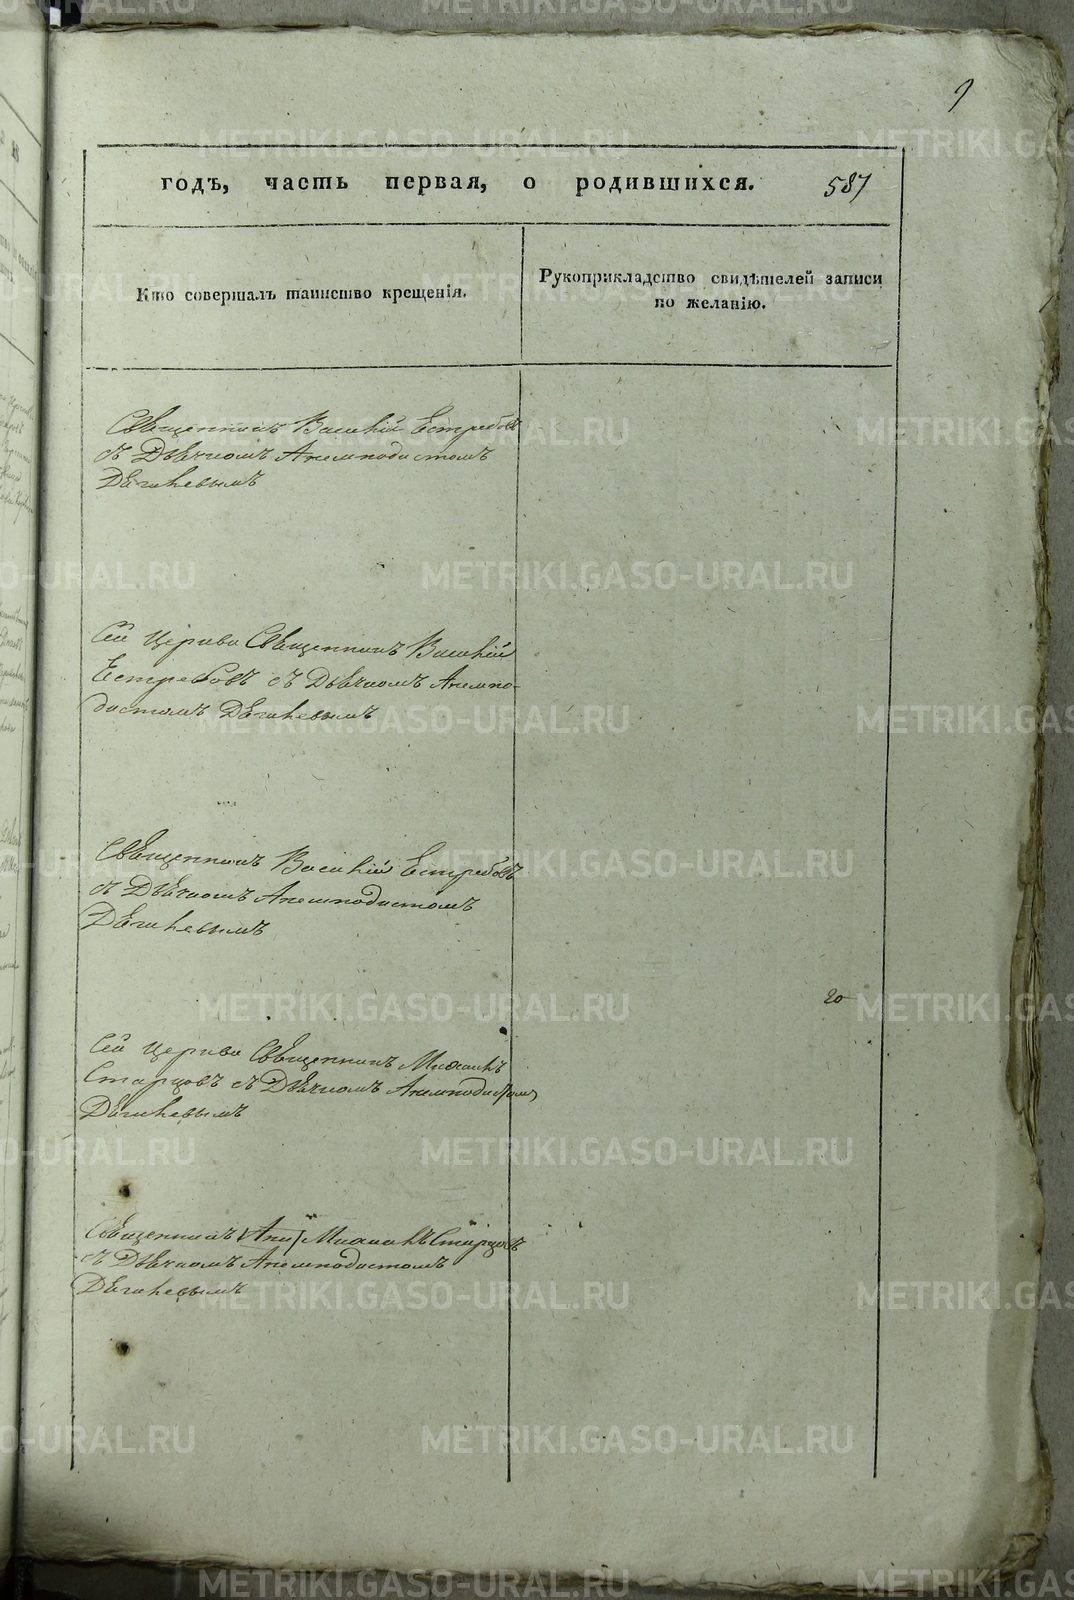 9
годъ, часть первая, о родившихся. 587
Кто совершалъ таинство крещенія.
Рукоприкладство свидѣтелей записи
по желанію.
Священникъ Василій Ястребовъ
съ Дьячкомъ Анемподистомъ
Сей Церкви Священникъ Василій
Ястребовъ съ Дьячкомъ Анемпо-
дистомъ
Священникъ Василій Ястребовъ
съ Дьячкомъ Анемподистомъ
20
Сей Церкви Священникъ Михаилъ
Старцовъ съ Дьячкомъ Анемподистомъ
Священникъ Михаилъ Старцовъ
съ Дьячкомъ Анемподистомъ
METRIKI.GASO-URAL.RU